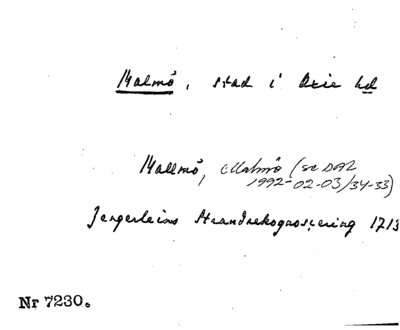 Malmö, stad i Oxie hd
Mallmö, Malmö (se DAL
1992-02-03/34-33)
Jergerleins Strandrekognoscering 1713
Nr 7230.